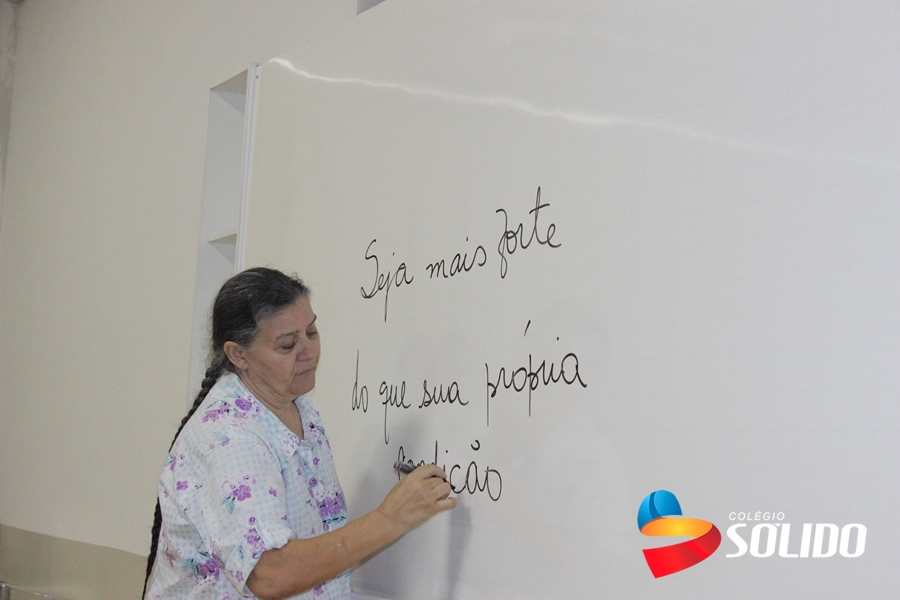 Seja mais forte
do que sua própria
condição
COLÉGIO
SÓLIDO